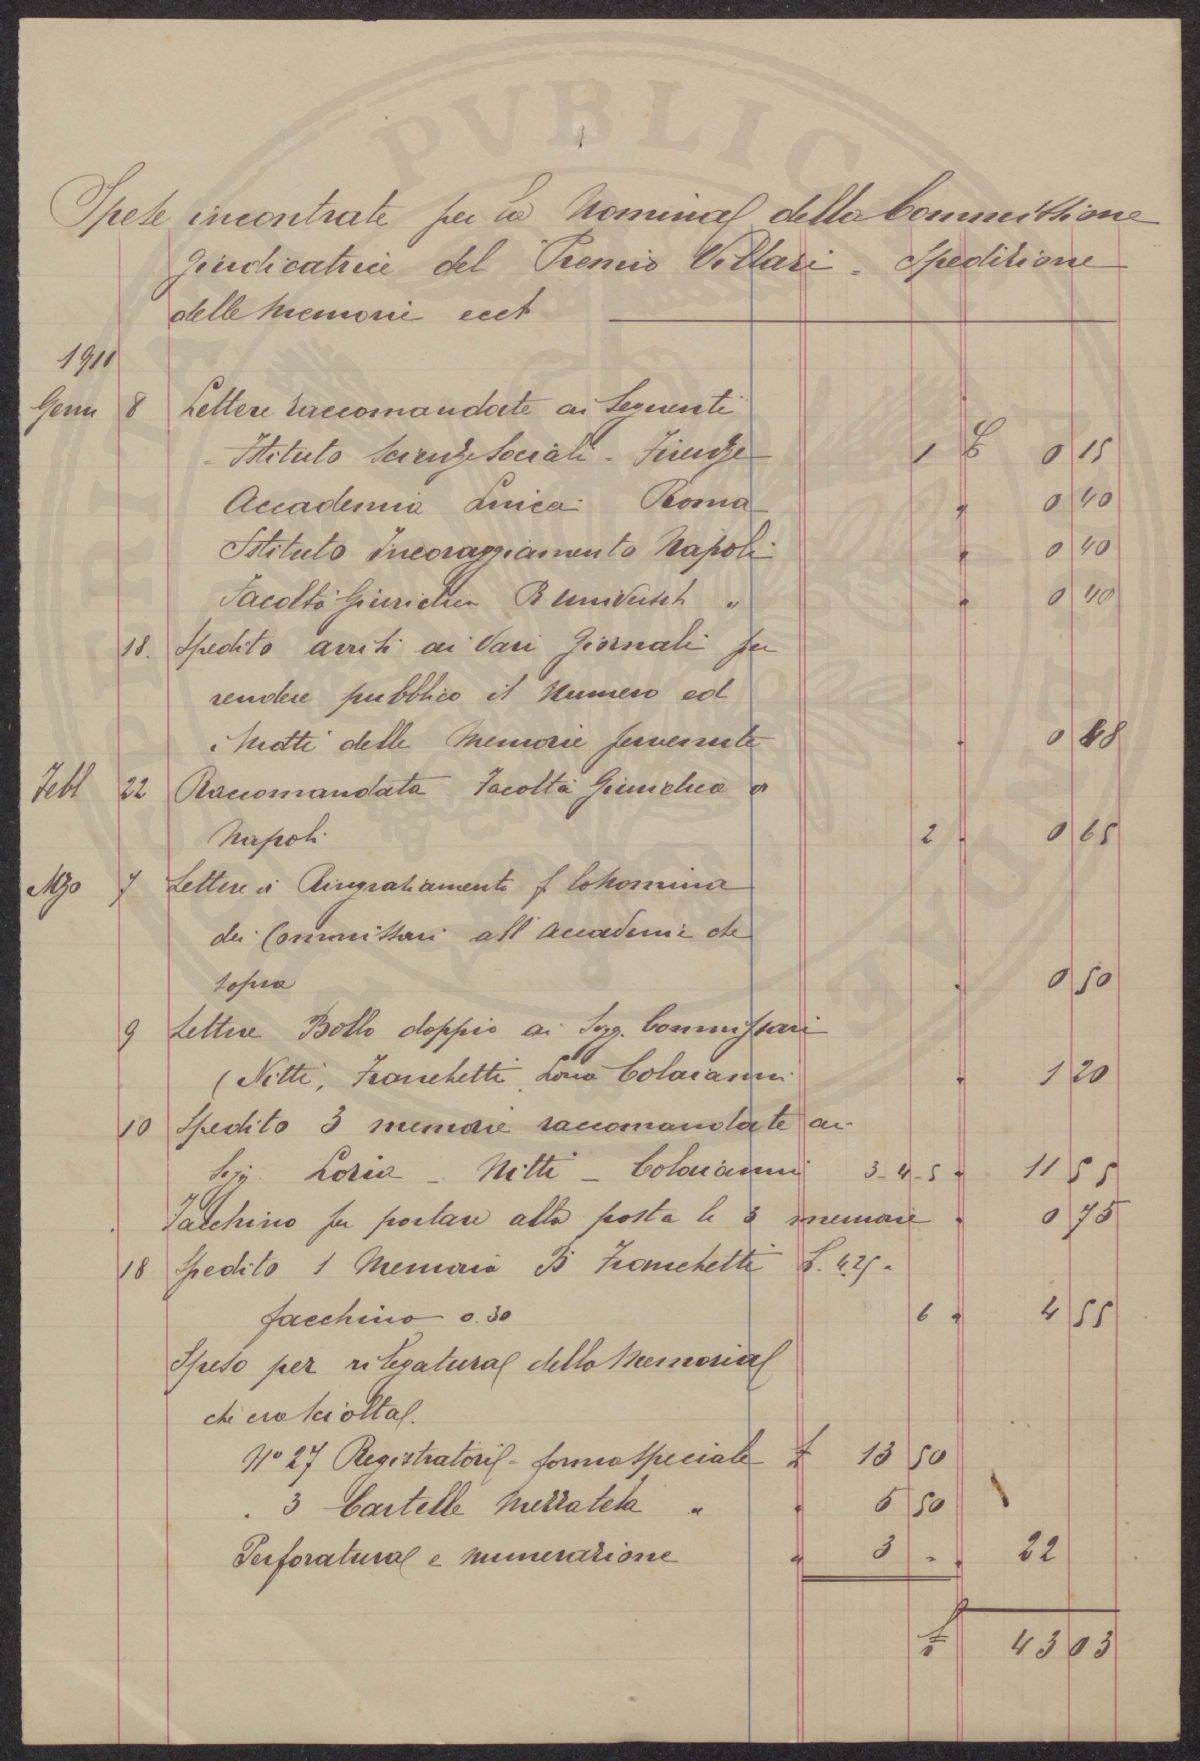 Spese incontrate per la Nomina della Commissione
giudicatrice del Premio Villari - Spedizione
delle Memorie ecct
1911
Genn 8 Lettere raccomandate ai Seguenti
- Istituto Scienze Sociali - Firenze 1 £ 0 15
Accademia Lincei Roma " 0 40
Istituto Incoraggiamento Napoli " 0 40
Facoltà Giuridica R Universith " " 0 40
18. Spedito avvisi ai Vari Giornali per
rendere pubblico il Numero ed
i Motti delle Memorie pervenute " 0 48
Febb 22 Raccomandata Facoltà Giuridica a
Napoli 2 " 0 65
Mzo 7 Lettere di Ringraziamento p la Nomina
dei Commissari all'Accademie di
sopra " 0 50
9 Lettere Bollo doppio ai Sigg. Commissari
(Nitti, Franchetti, Loria Colaianni " 1 20
10 Spedito 3 memorie raccomandate ai
Sigg. Loria - Nitti - Colaianni 3-4-5 " 11 55
Facchino per portare alla posta le 3 memorie " 0 75
18 Spedito 1 Memoria Bi Franchetti L. 4.25 "
facchino 0.30 6 " 4 55
Spesa per rilegatura della Memoria
che era sciolta.
No 27 Registratori - forma speciale £ 13 50
" 3 Cartelle mezza tela " " 5 50
Perforatura e numerazione " 3 " " 22
£ 43 03
PVBLIC